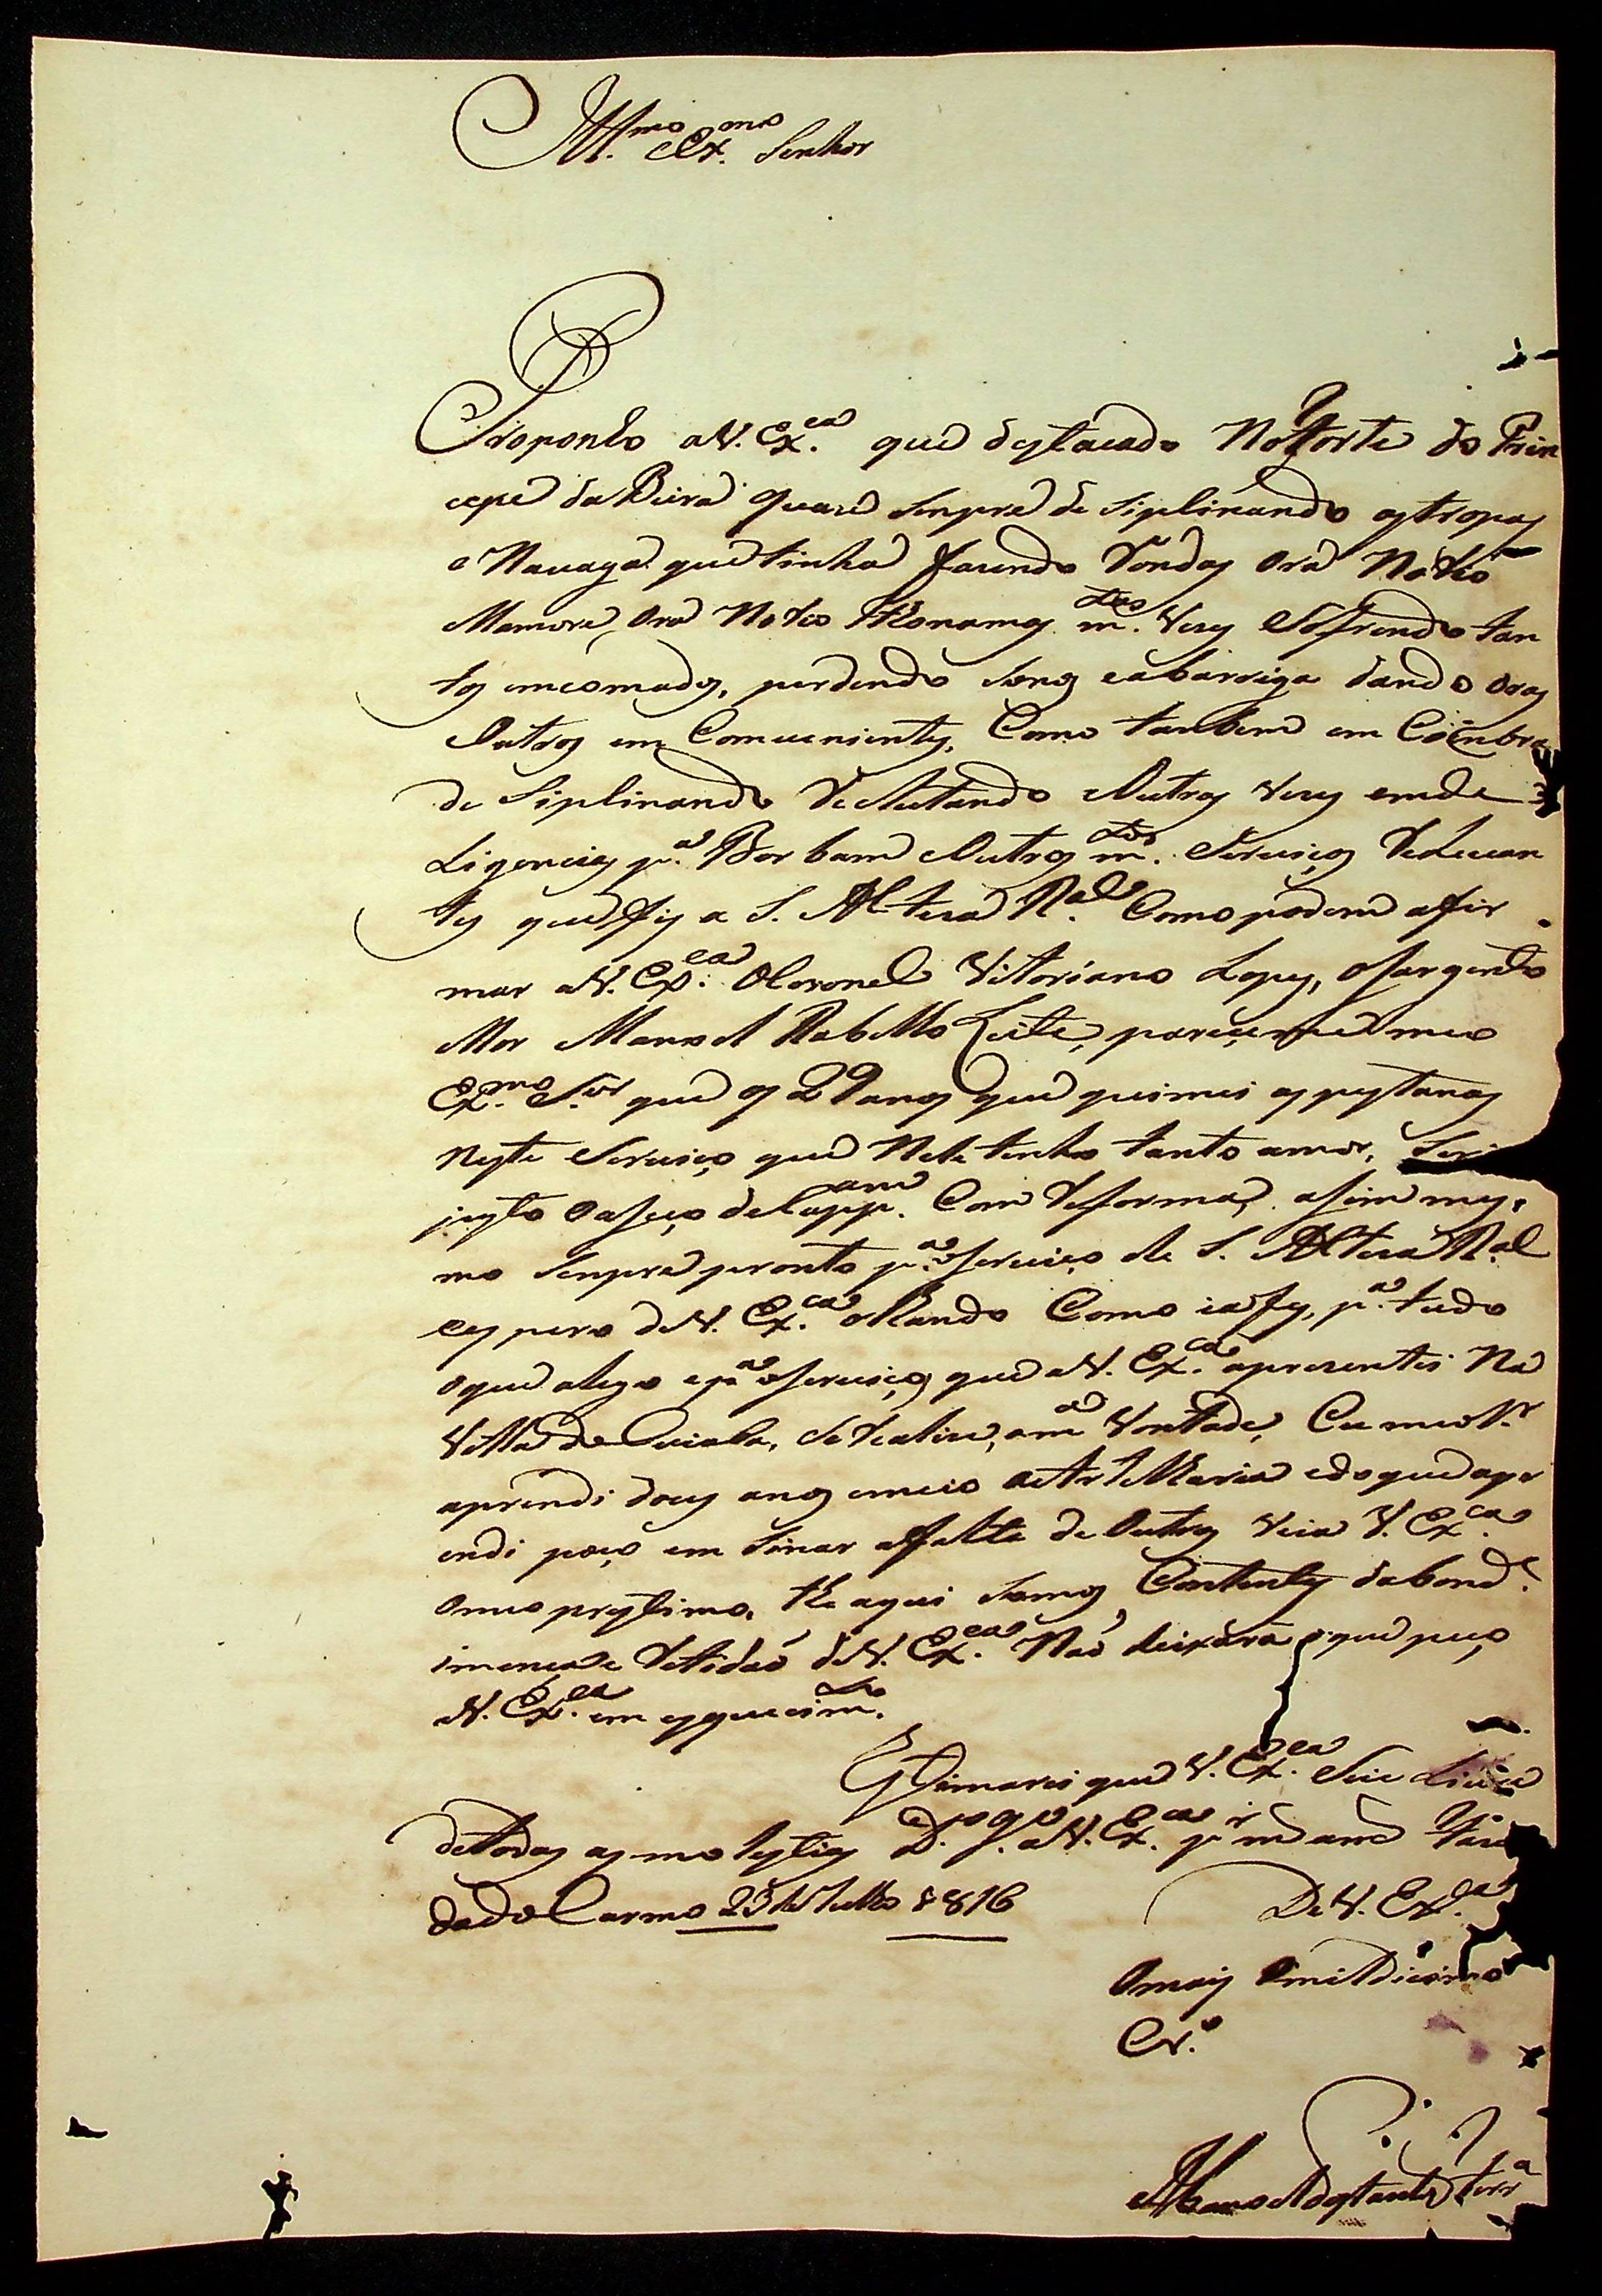 Ill.mo Ex.mo Senhor
Proponho a V. Ex.ca que destacado No Forte do Prin
cepe da Beira quazi senpre de siplinando as tropas
e Navaga que tinha fazendo Rondas Ora No Rio
Mamore, Ora No Rio Itonamas m.tas Vezes Sofrendo tan
tos emcomados, perdendo sonos e a barriga dando oras
Outros em Comvenientes, Como tanbem em Coinbra
de siplinando Reclutando Outras Vezes em de
Ligencias p.a Borbam Outros m.tos Servicos Relevan
tes que fis a S. Alteza R.al Como podem afir
mar a V. Ex.ca O Coronel Vitoriano Lopes, O Sargento
Mor Manoel Rabello Leite, pareçe me meo
Ex.mo S.or que os 29 anos que queimei as pestanas
neste Serviço que Nele tenho tanto amor, Ser
justo O aseço de Capp.am Com Reforma, asim mes,
mo Senpre pronto p.a o Serviço de S. Alteza R.al
e espero de V. Ex.ca o Mando Como ia fes, p.a tudo
o que alego e p.a o Serviços que a V. Ex.ca aprezentei Na
Villa de Cuiaba, se Realize, a m.a Vontade, Eu meo S.r
aprendi dous anos e meio a Artelharia e do que apr
endi poço em sinar a falta de Outros Veia V. Ex.ca
O meo prestimo, the aqui Somos Contentes da bond.e
imença e Retidaõ de V. Ex.ca Naõ deixara o que peço
V. Ex.ca em esquecim.to
Estimarei que V. Ex.ca Seie Livre
de todas as molestias D.s g.e a V. Ex.ca p.r m am
dado Carmo 23 de Julho 1816 De V. Ex.ca
O mais Omildicimo
Cr.o